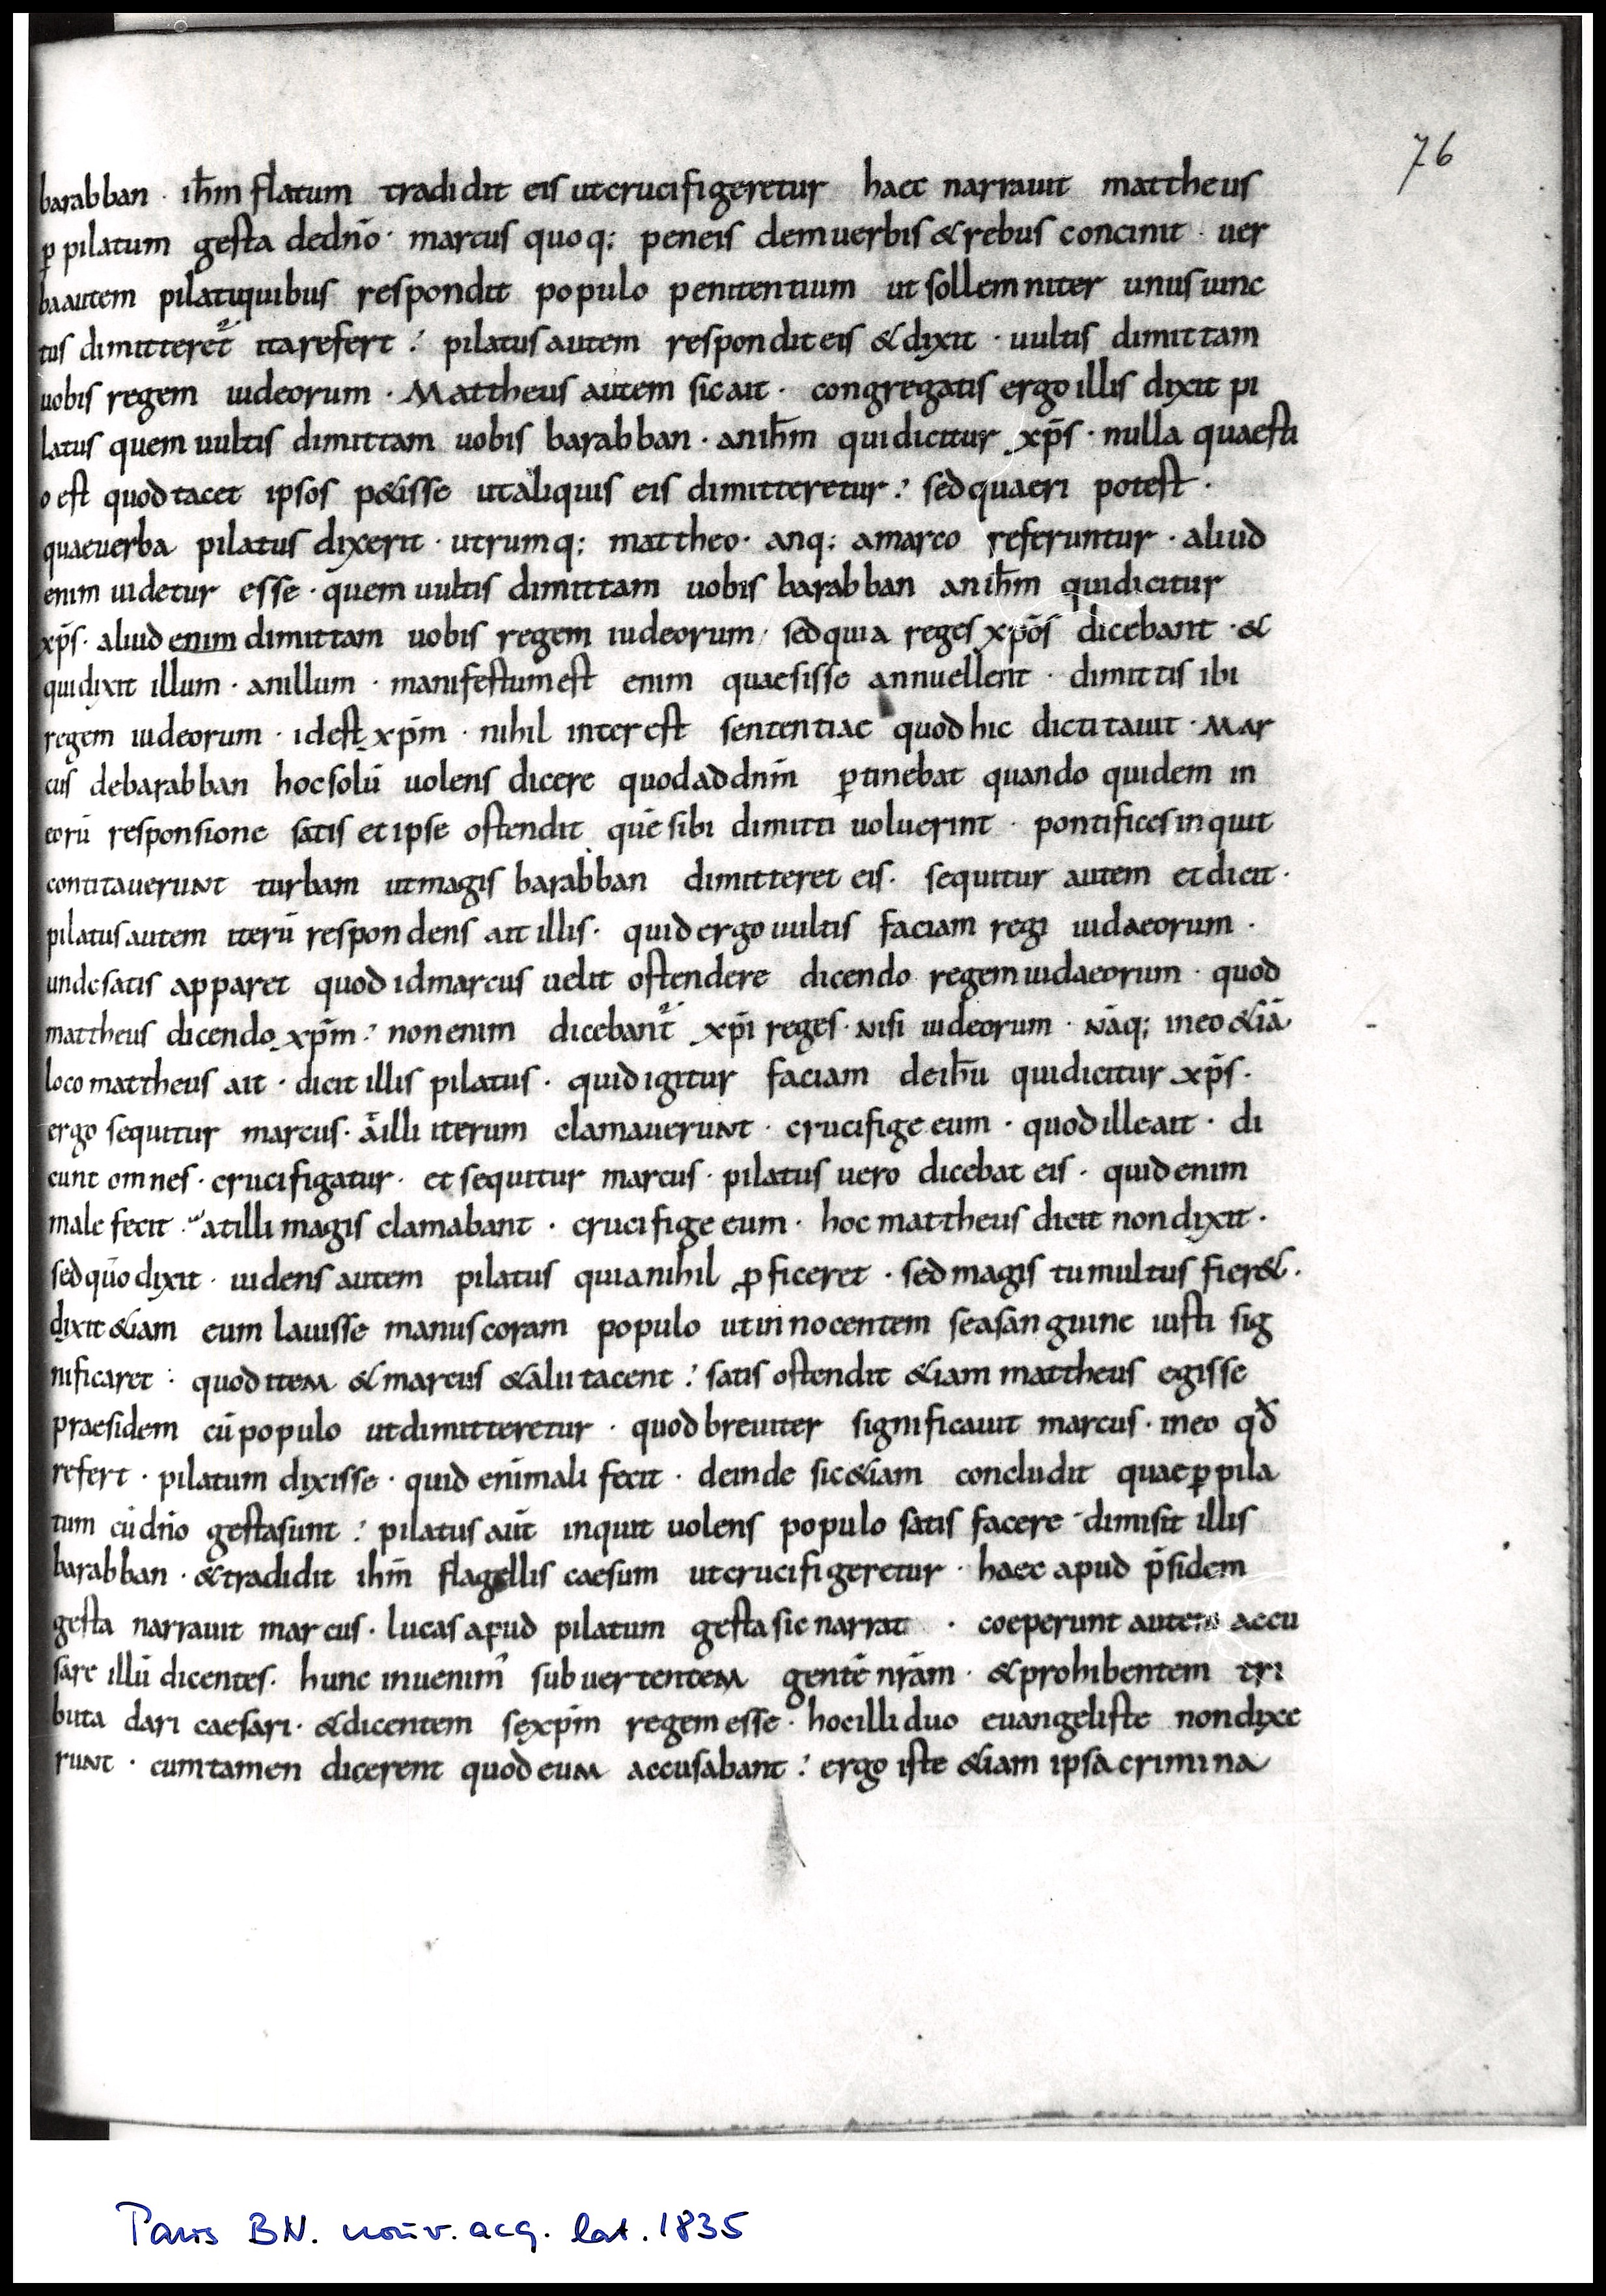 76
barabban · ih̅m flatum tradidit eis utcrucifigeretur haec narrauit mattheus
ꝑ pilatum gesta dedn̅o · marcus quoq; peneis demuerbis & rebus concinit · uer
baautem pilatuquibus respondit populo penitentium ut sollemniter unusuinc
tus dimitteret᷑ itarefert ? pilatus autem respondit eis & dixit · uultis dimittam
uobis regem iudeorum · Mattheus autem sicait · congregatis ergo illis dixit pi
latus quem uultis dimittam uobis barabban · anih̅m quidicitur xp̅s · nulla quaesti
o est quod tacet ipsos p&isse utaliquis eis dimitteretur ? sed quaeri potest ·
quaeuerba pilatus dixerit · utrumq; mattheo · anq; amarco referuntur · aliud
enim uidetur esse · quem uultis dimittam uobis barabban anih̅m quidicitur
xp̅s · aliud enim dimittam uobis regem iudeorum · sed quia reges xp̅os dicebant · &
quidixit illum · anillum · manifestumest enim quaesisse annuellent · dimittis ibi
regem iudeorum · idest xp̅m · nihil interest sententiae quod hic dictitauit · Mar
cus debarabban hocsolu̅ uolens dicere quodaddn̅m ꝑtinebat quando quidem in
eoru̅ responsione satis et ipse ostendit que̅ sibi dimitti uoluerint · pontifices inquit
contitauerunt turbam utmagis barabban dimitteret eis · sequitur autem et dicit ·
pilatus autem iteru̅ respondens ait illis · quid ergo uultis faciam regi iudaeorum ·
unde satis apparet quod idmarcus uelit ostendere dicendo regem iudaeorum · quod
mattheus dicendo xp̅m ? nonenim dicebant᷑ xp̅i reges · nisi iudeorum · Na̅q; ineo &ia̅
loco mattheus ait · dicit illis pilatus · quid igitur faciam deih̅u quidicitur xp̅s ·
ergo sequitur marcus · a̅illi iterum clamauerunt · crucifige eum · quod illeait · di
cunt omnes · crucifigatur · et sequitur marcus · pilatus uero dicebat eis · quid enim
male fecit · atilli magis clamabant · crucifige eum · hoc mattheus dicit nondixit ·
sed quo̅ dixit · uidens autem pilatus quianihil ꝓficeret · sed magis tumultus fier& ·
dixit &iam eum lauisse manus coram populo utinnocentem seasanguine iusti sig
nificaret : quod item & marcus & alii tacent ? satis ostendit &iam mattheus egisse
praesidem cu̅ populo utdimitteretur · quod breuiter significauit marcus · ineo qd̅
refert · pilatum dixisse · quid enimali fecit · deinde sic&iam concludit quaeꝑpila
tum cu̅ dn̅o gestasunt ? pilatus au̅t inquit uolens populo satis facere dimisit illis
barabban · & tradidit ih̅m flagellis caesum utcrucifigeretur · haec apud p̅sidem
gesta narrauit marcus · lucas apud pilatum gesta sic narrat · coeperunt autem accu
sare illu̅ dicentes · hunc inuenim᾽ subuertentem gente̅ nr̅am · & prohibentem tri
buta dari caesari · & dicentem sexp̅m regem esse · hocilli duo euangeliste nondixe
runt · cumtamen dicerent quod eum accusabant ? ergo iste &iam ipsa crimina
Paris BN. nouv. acq. lat. 1835